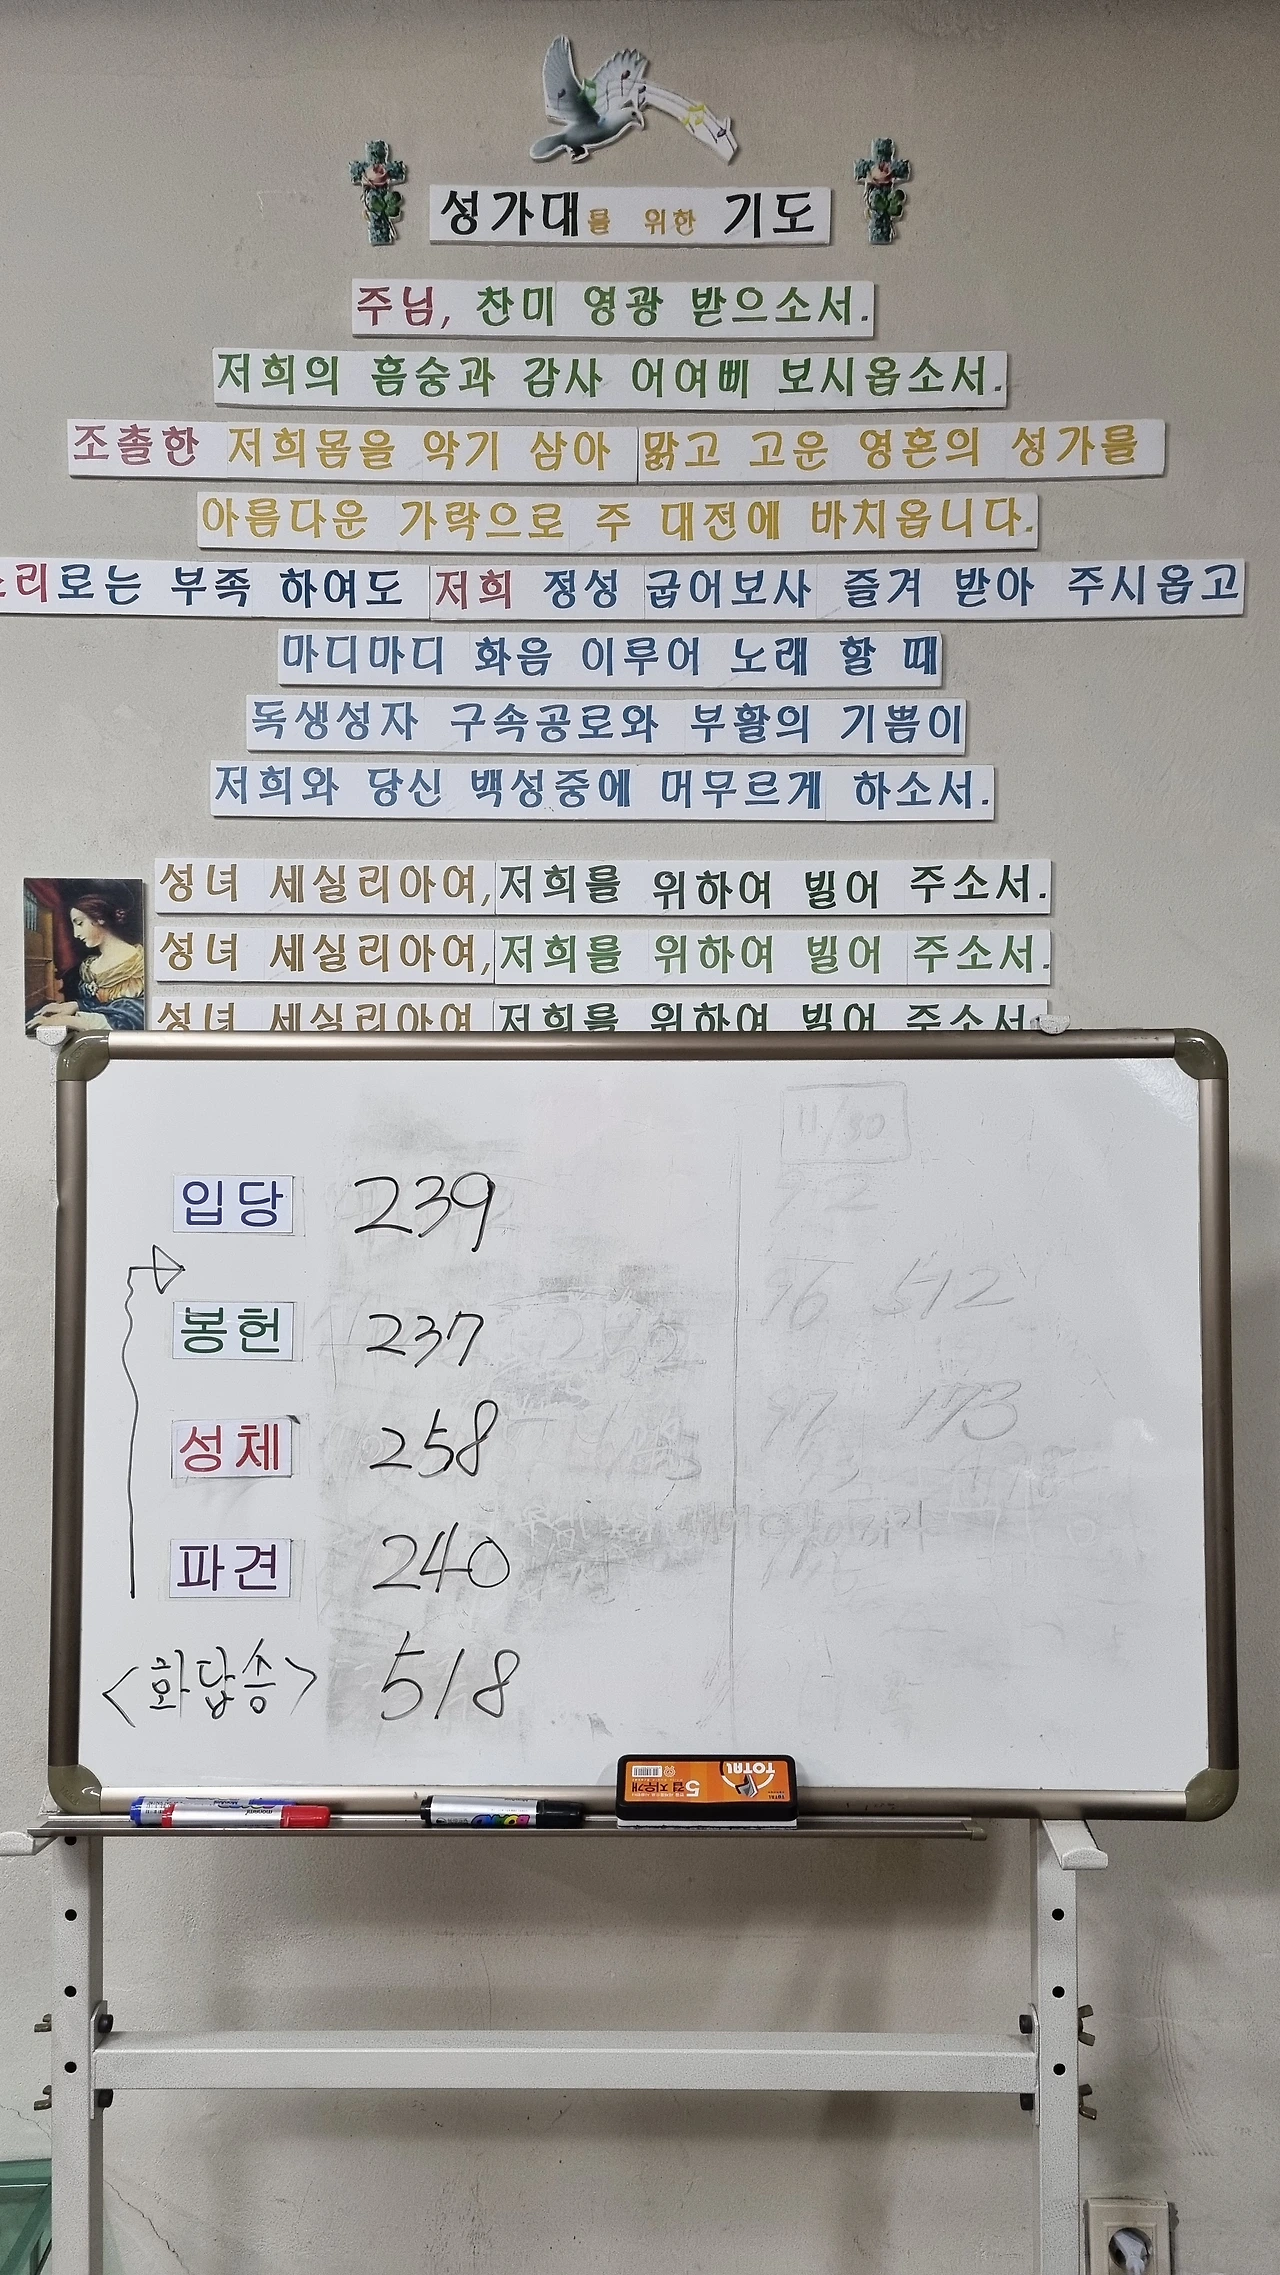 성가대를 위한 기도
주님, 찬미 영광 받으소서.
저희의 흠숭과 감사 어여삐 보시옵소서.
조촐한 저희몸을 악기 삼아 맑고 고운 영혼의 성가를
아름다운 가락으로 주 대전에 바치옵니다.
리로는 부족 하여도 저희 정성 굽어보사 즐겨 받아 주시옵고
마디마디 화음 이루어 노래 할 때
독생성자 구속공로와 부활의 기쁨이
저희와 당신 백성중에 머무르게 하소서.
성녀 세실리아여, 저희를 위하여 빌어 주소서.
성녀 세실리아여, 저희를 위하여 빌어 주소서.
성녀 세실리아여 저희를 위하여 빌어 주소서.
11/30
입당 239
512
봉헌 237
173
성체 258
파견 240
<화답송> 518
TOTAL
5겹 지우개
monami